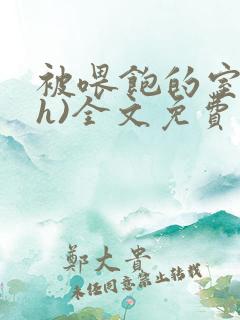 被喂饱的室
h)全文免费
郑大贵
未经同意禁止转载